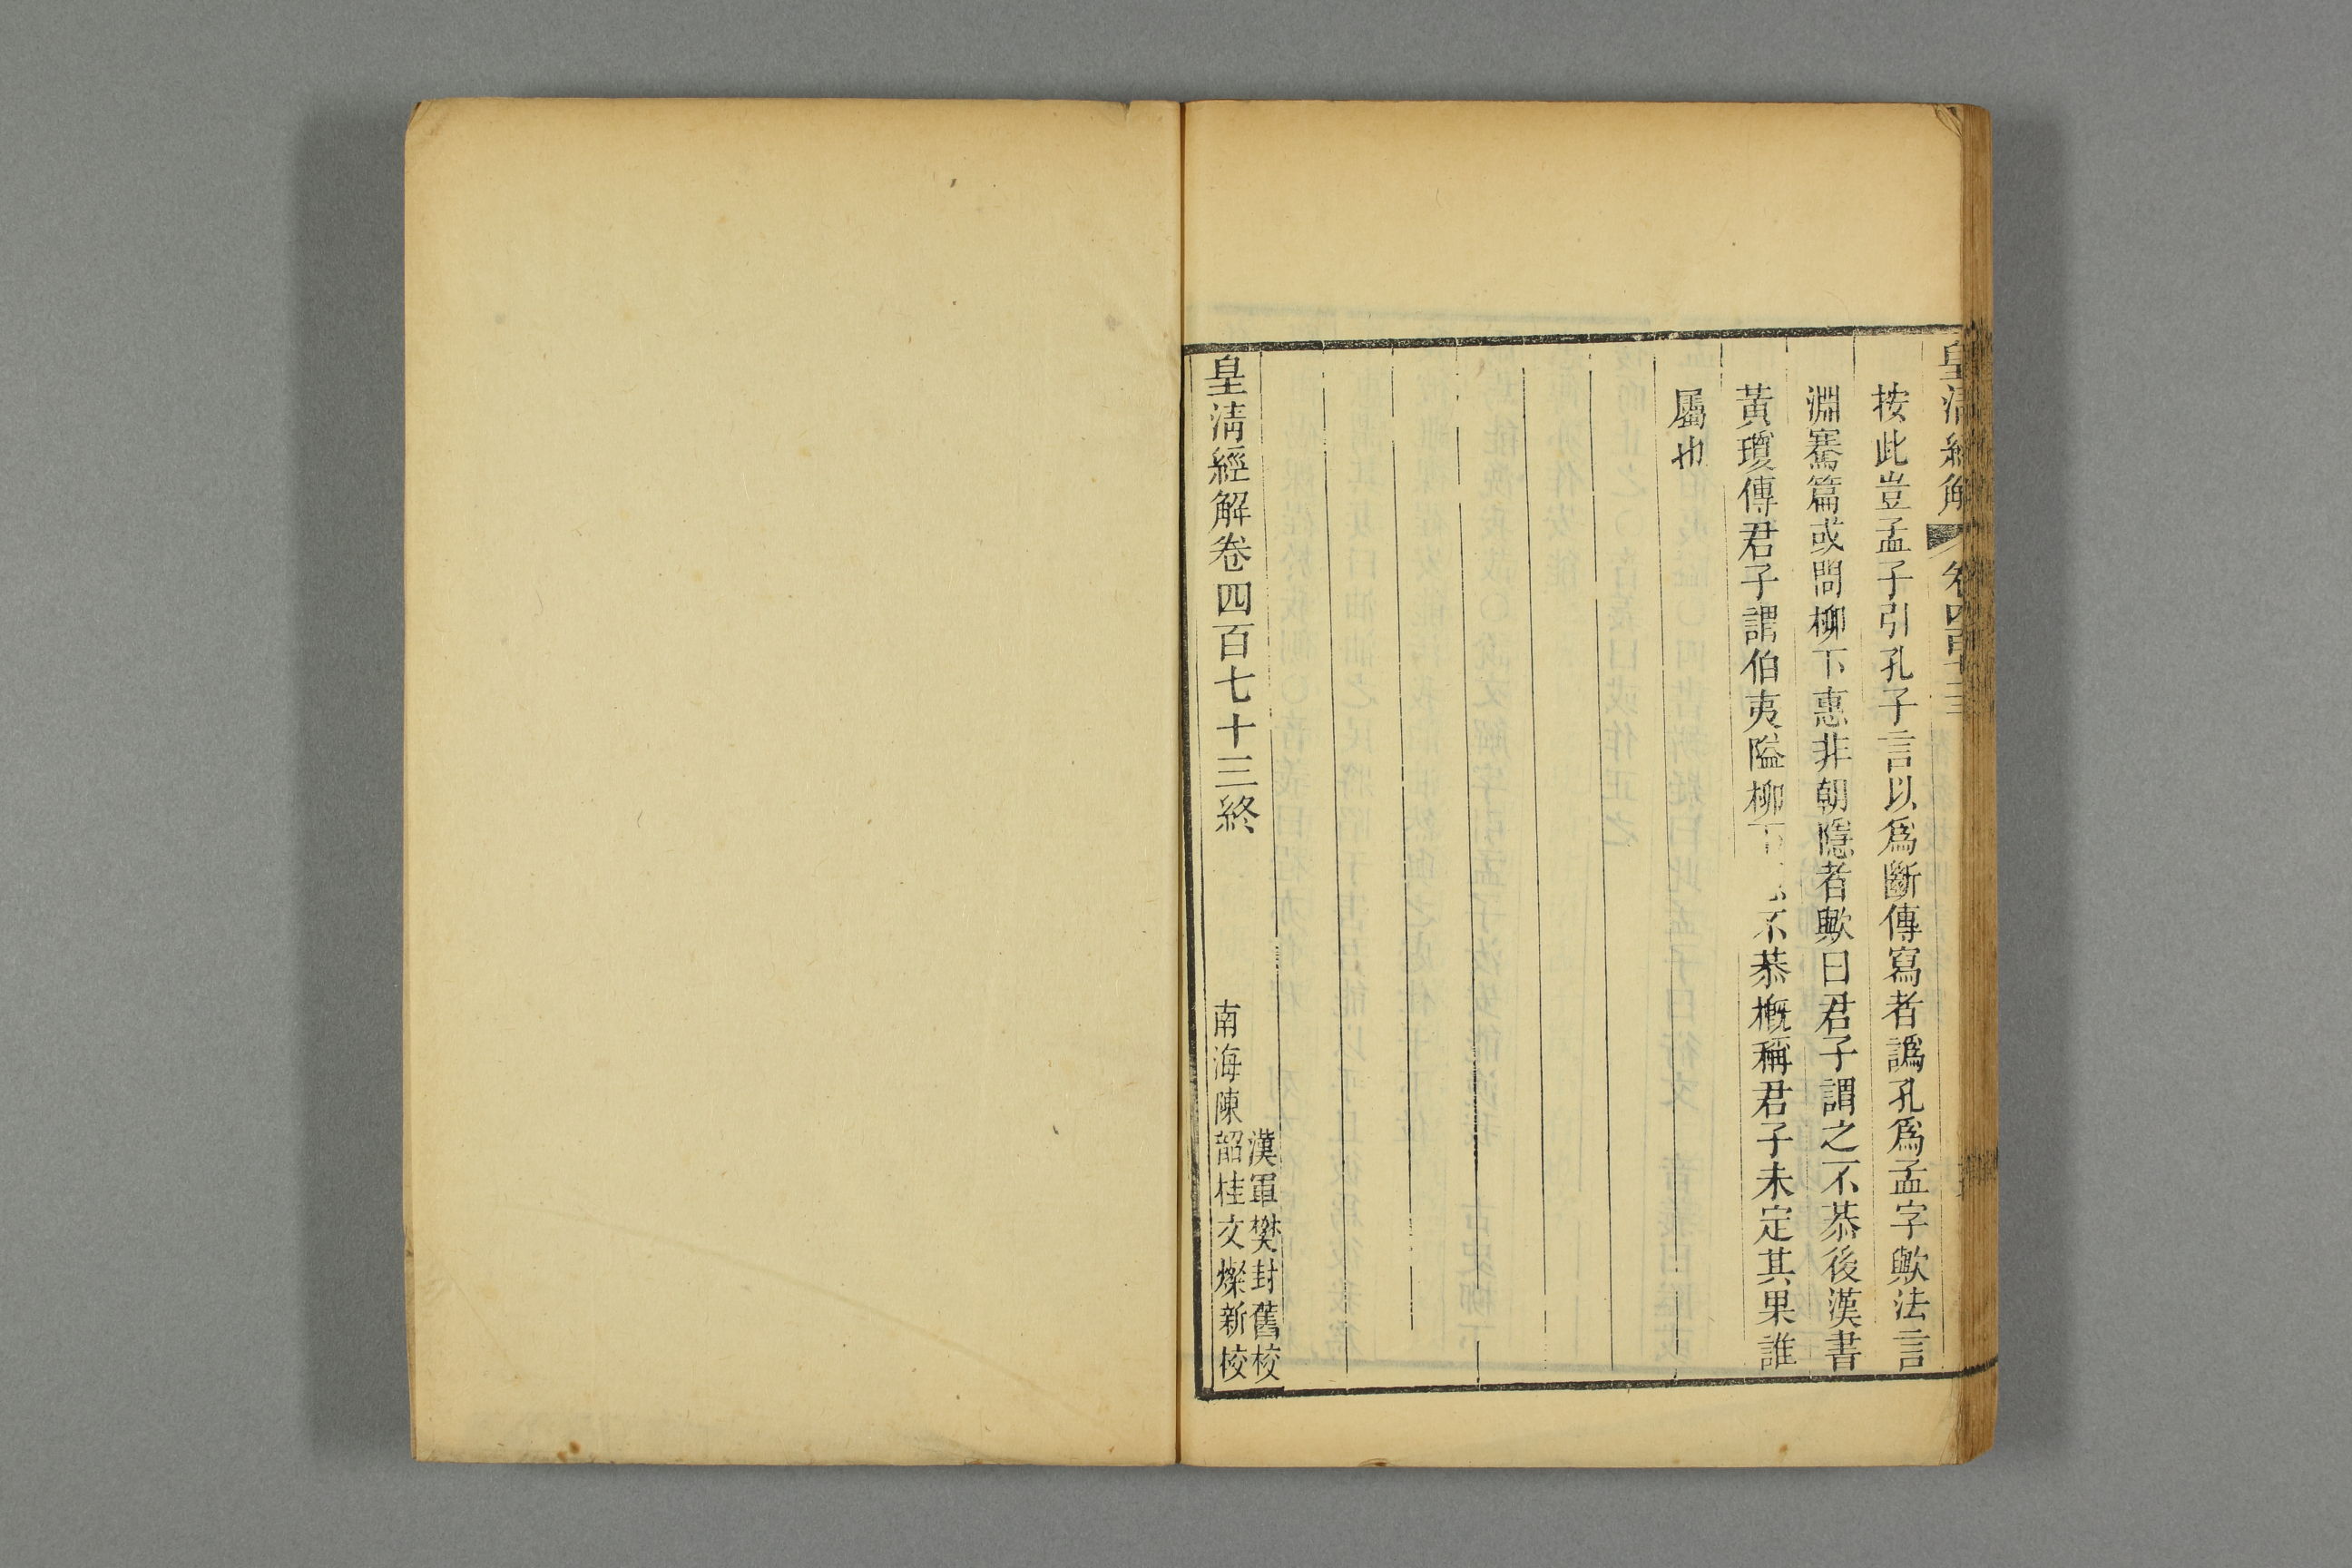 皇清經解 卷四百七十三
按此豈孟子引孔子言以爲斷傳寫者譌孔爲孟字歟法言
淵騫篇或問柳下惠非朝隱者歟曰君子謂之不恭後漢書
黃瓊傳君子謂伯夷隘柳下不恭概稱君子未定其果誰
屬也
皇清經解卷四百七十三終
漢軍樊封舊校
南海陳韶桂文燦新校